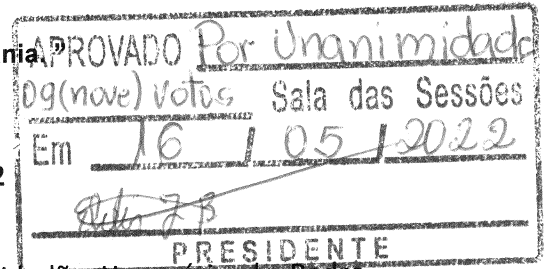 nia."
APROVADO Por Unanimidade
09 (nove) votos Sala das Sessões
Em 16 / 05 / 2022
2
PRESIDENTE